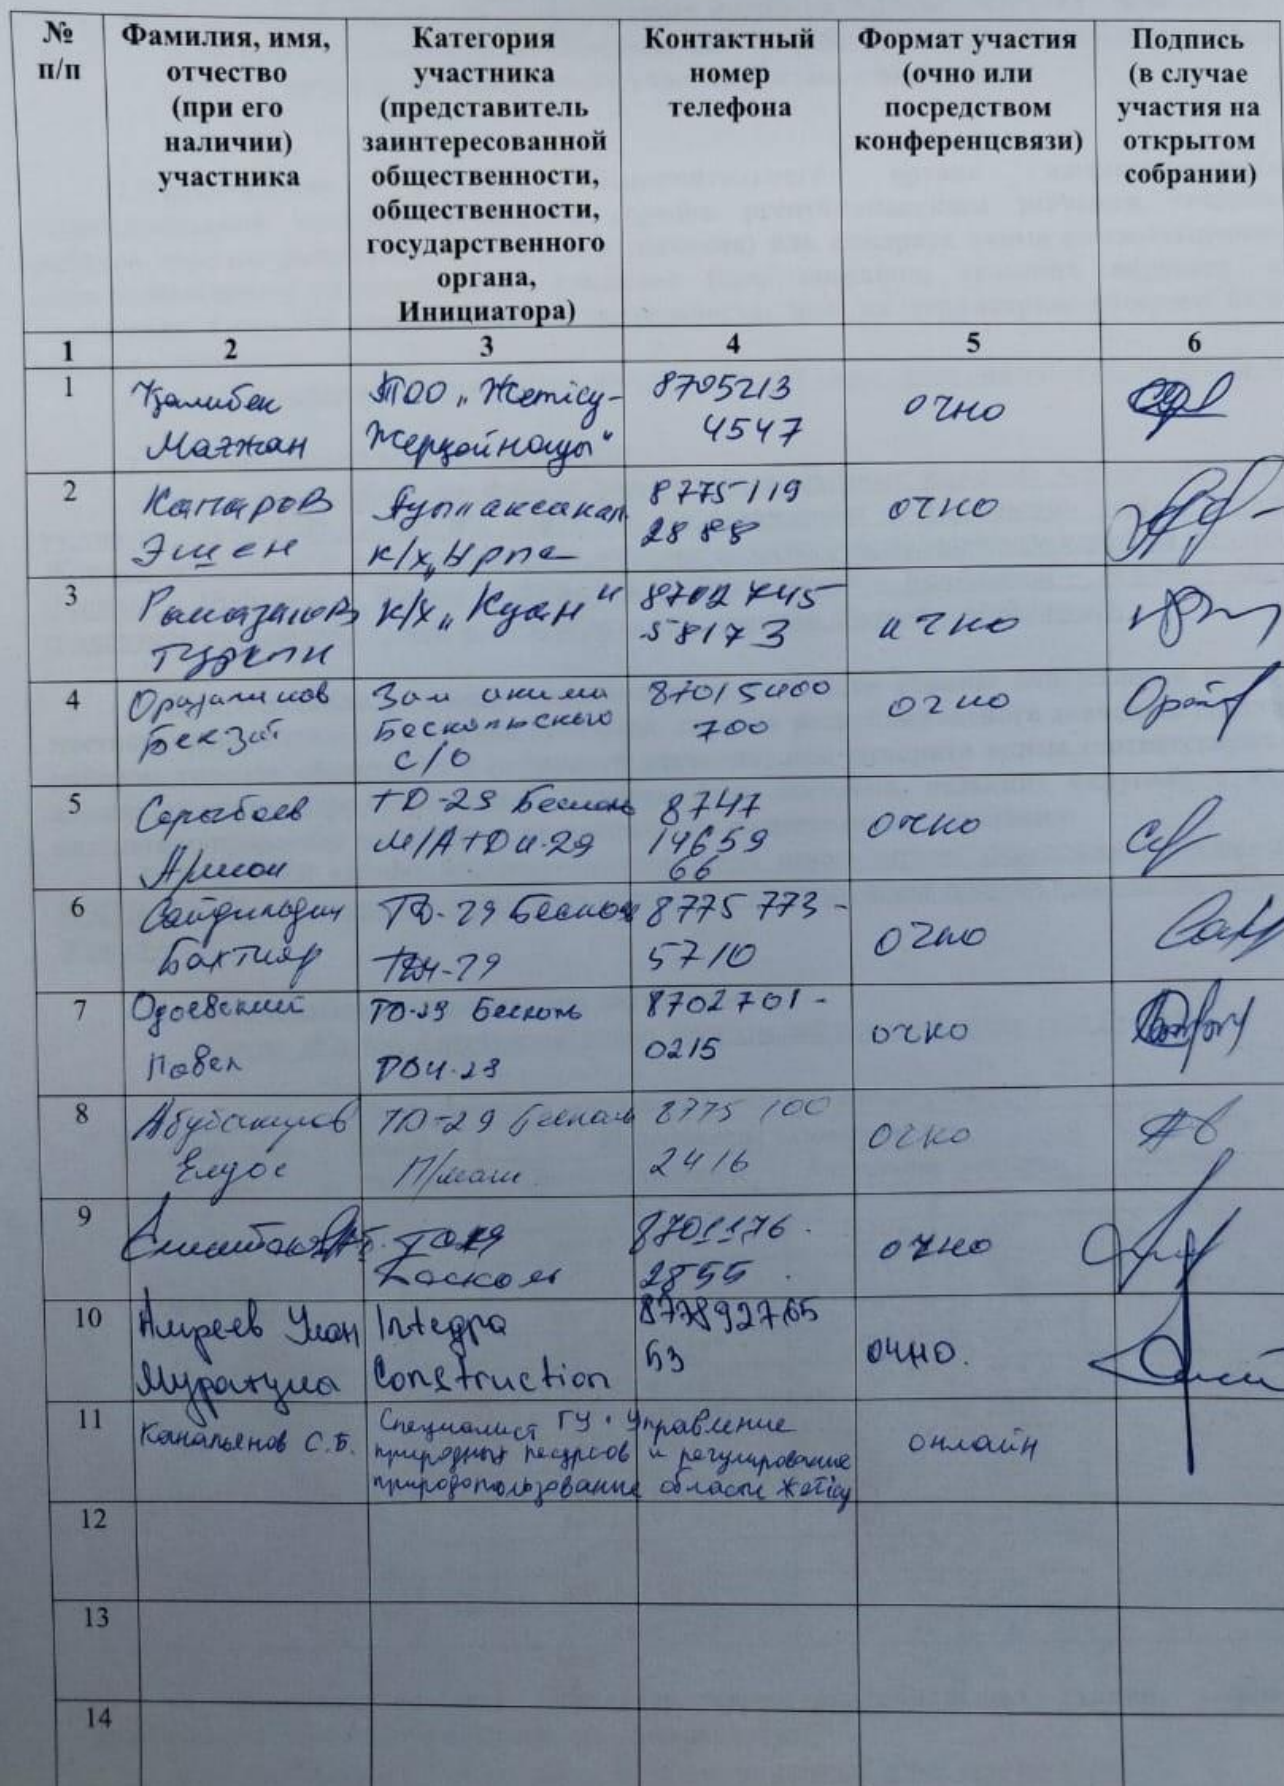 № п/п
Фамилия, имя, отчество (при его наличии) участника
Категория участника (представитель заинтересованной общественности, общественности, государственного органа, Инициатора)
Контактный номер телефона
Формат участия (очно или посредством конференцсвязи)
Подпись (в случае участия на открытом собрании)
1 2 3 4 5 6
1
Қалибек
Мағжан
ТОО „Жетісу-
Жерқойнауы"
8705213
4547
очно
2
Капаров
Эшен
к/х
8775119
2888
очно
3
Рамазанов
к/х „Куан"
8702 745
58173
очно
4
Оразалинов
Бекзат
Зам акима
Бескольского
С/О
87015400
700
очно
5
Сарыбаев
Арман
ТО-29 Бесколь
8747
14659
66
очно
6
Бахтияр
ТО-29 Бесколь
8775 773-
5710
очно
7
Одоевский
Павел
ТО-29 Бесколь
8702701-
0215
очно
8
Абубакиров
Елдос
ТО-29 Бесколь
П/маш.
8775 100
2416
очно
9
Басколь
8701176.
2855.
очно
10
Амреев Улан
Муратұлы
Integra
Construction
877892765
53
очно.
11
Канапьянов С.Б.
Специалист ГУ "Управление
природных ресурсов и регулирование
природопользование области Жетісу
онлайн
12
13
14